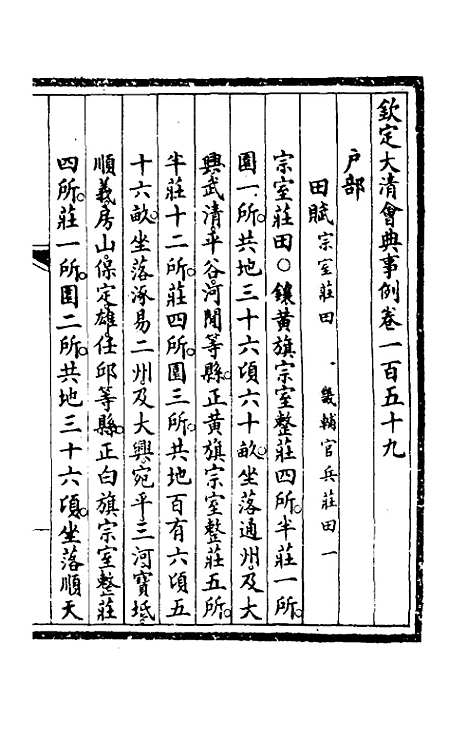 欽定大清會典事例卷一百五十九
戶部
田賦宗室莊田 、畿輔官兵莊田一
宗室莊田〇鑲黃旗宗室整莊四所。半莊一所。
園一所。共地三十六頃六十畝。坐落通州及大
興武清平谷河閒等縣。正黃旗宗室整莊五所。
半莊十二所。莊四所。園三所。共地百有六頃五
十六畝。坐落涿易二州及大興宛平三河寶坻
順義房山保定雄任邱等縣。正白旗宗室整莊
四所。莊一所。園二所。共地三十六頃。坐落順天